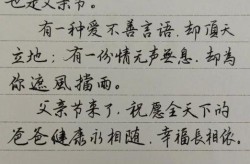 也是父亲节。
有一种爱不善言语,却顶天
立地;有一份情无声无息,却为
你遮風擋雨。
父亲节来了,祝愿全天下的
爸爸健康永相随,幸福長相依。